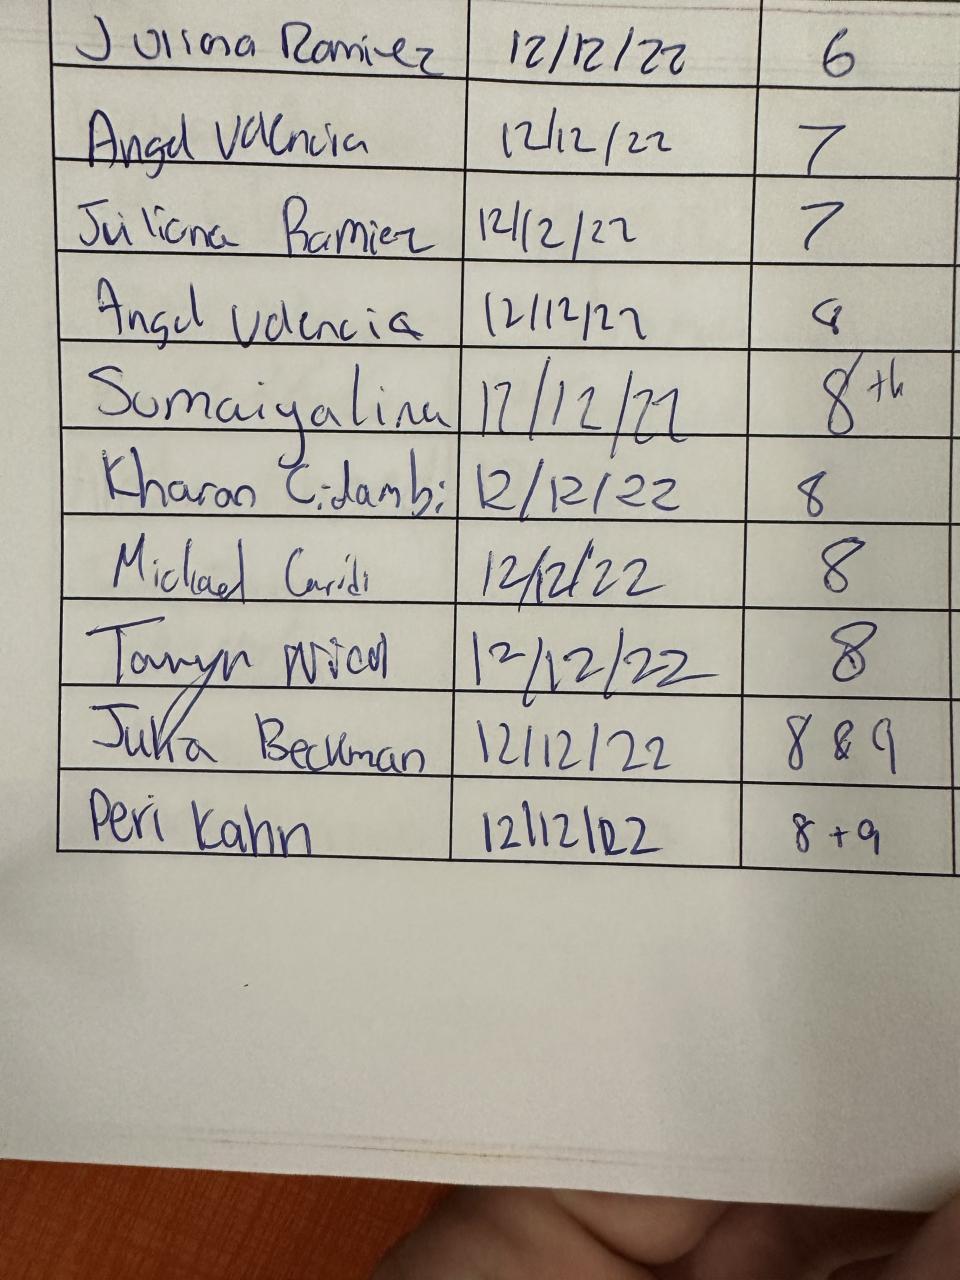 Juliana Ramirez 12/12/22 6
Angel Valencia 12/12/22 7
Juliana Ramirez 12/12/22 7
Angel Valencia 12/12/22 8
Sumaiya 12/12/22 8th
Kharan Cidambi 12/12/22 8
Michael Caridi 12/12/22 8
Taryn Nicol 12/12/22 8
Julia Beckman 12/12/22 8 & 9
Peri Kahn 12/12/22 8 + 9